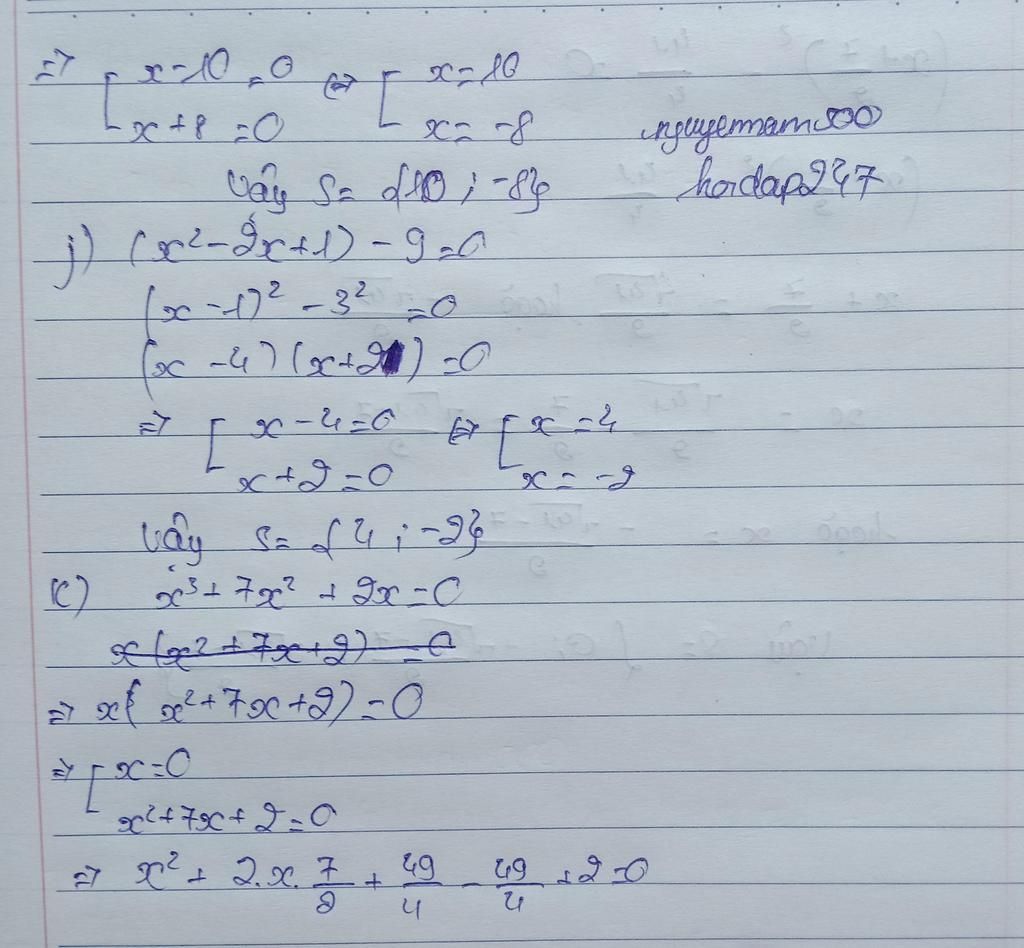 => [ x - 10 = 0 <=> [ x = 10
x + 8 = 0 x = -8 nguyennam500
Vậy S = {10 ; -8} hoidap247
j) (x² - 2x + 1) - 9 = 0
(x - 1)² - 3² = 0
(x - 4) (x + 2) = 0
=> [ x - 4 = 0 <=> [ x = 4
x + 2 = 0 x = -2
Vậy S = {4 ; -2}
k) x³ + 7x² + 2x = 0
x (x² + 7x + 2) = 0
=> x( x² + 7x + 2) = 0
=> [ x = 0
x² + 7x + 2 = 0
=> x² + 2.x. 7/2 + 49/4 - 49/4 + 2 = 0